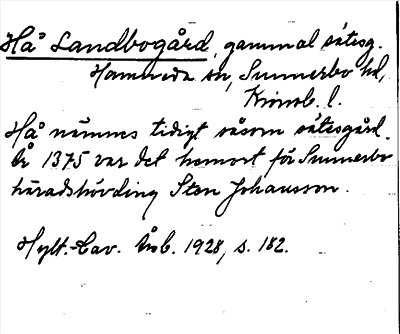 Hå Landbogård, gammal sätesg.
Hamneda sn, Sunnerbo hd,
Kronob. l.
Hå nämnes tidigt såsom sätesgård.
År 1375 var det hemort för Sunnerbo
häradshövding Sten Johansson.
Hylt.-Cav. Årsb. 1928, s. 182.